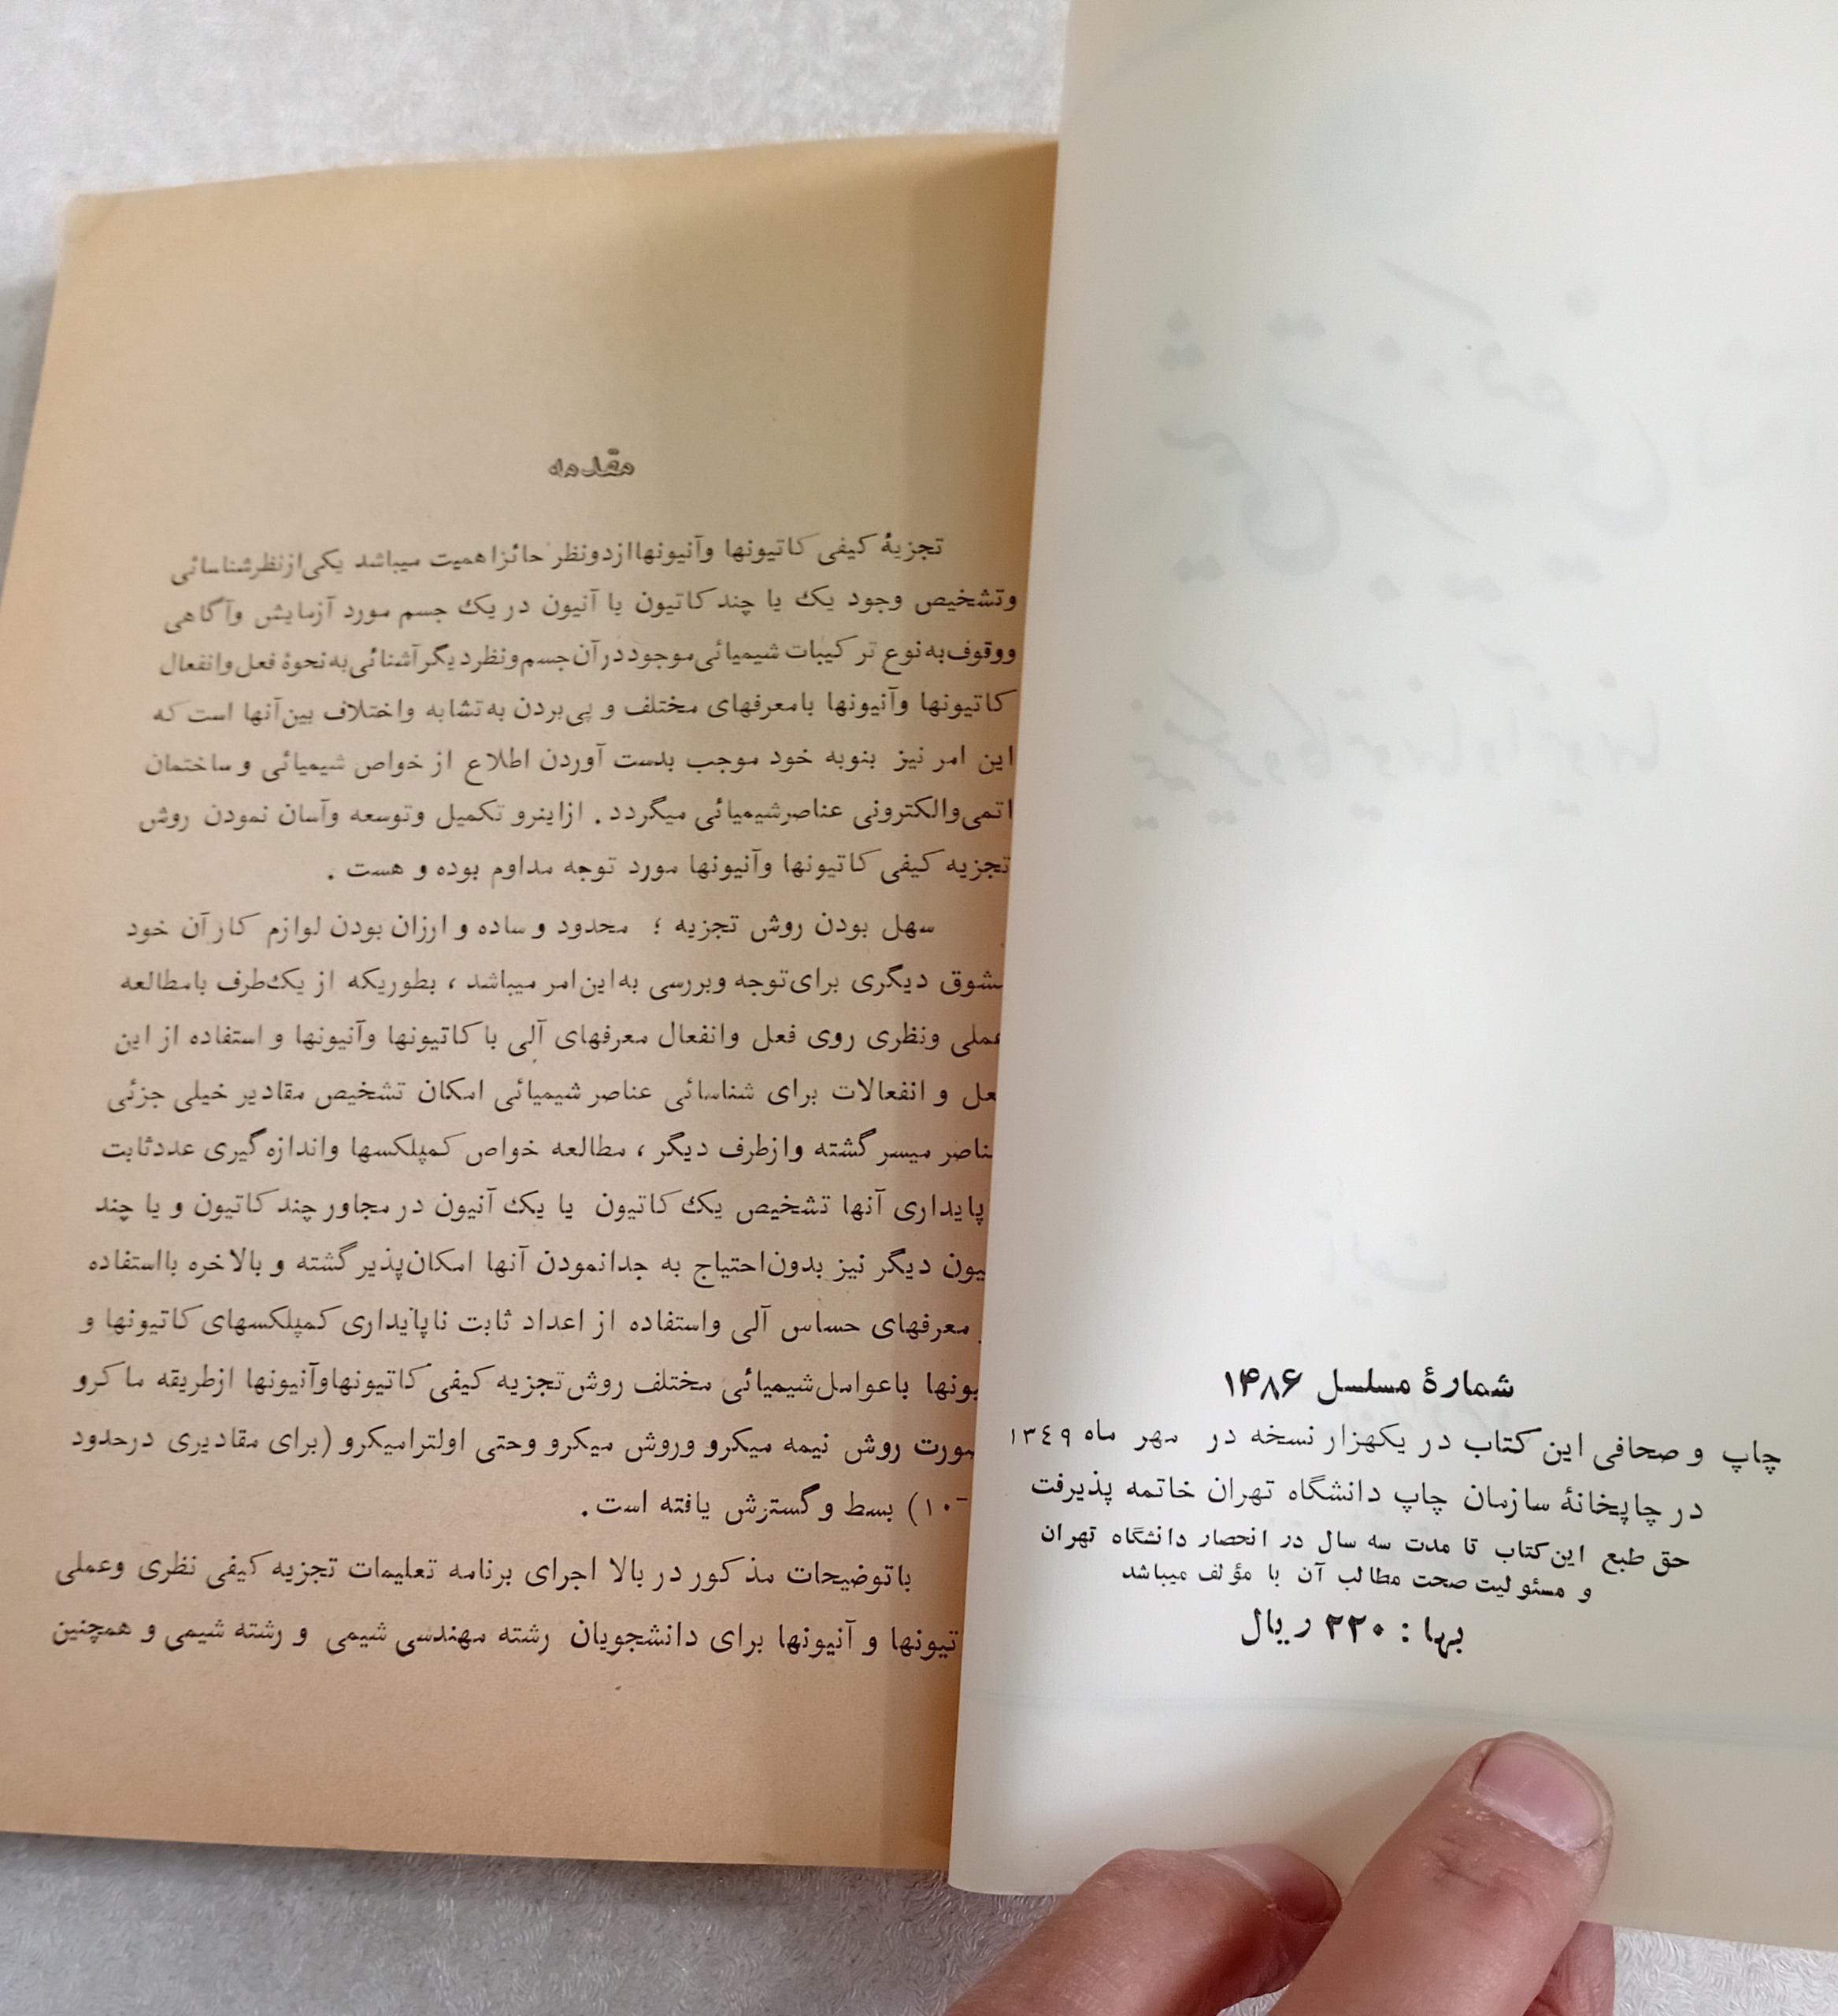 شمارهٔ مسلسل ۱۴۸۶
چاپ و صحافی این کتاب در یکهزار نسخه در مهر ماه ۱۳٤۹
در چاپخانهٔ سازمان چاپ دانشگاه تهران خاتمه پذیرفت
حق طبع این کتاب تا مدت سه سال در انحصار دانشگاه تهران
و مسئولیت صحت مطالب آن با مؤلف میباشد
بها : ۲۲۰ ریال
مقدمه
تجزیهٔ کیفی کاتیونها وآنیونها ازدونظر حائزاهمیت میباشد یکی ازنظرشناسائی
وتشخیص وجود یک یا چند کاتیون یا آنیون در یک جسم مورد آزمایش وآگاهی
ووقوف به نوع ترکیبات شیمیائی موجود درآن جسم ونظر دیگر آشنائی به نحوهٔ فعل وانفعال
کاتیونها وآنیونها بامعرفهای مختلف و پی بردن به تشابه واختلاف بین آنها است که
این امر نیز بنوبه خود موجب بدست آوردن اطلاع از خواص شیمیائی و ساختمان
اتمی والکترونی عناصرشیمیائی میگردد . ازاینرو تکمیل وتوسعه وآسان نمودن روش
تجزیه کیفی کاتیونها وآنیونها مورد توجه مداوم بوده و هست .
سهل بودن روش تجزیه ؛ محدود و ساده و ارزان بودن لوازم کار آن خود
شوق دیگری برای توجه وبررسی به این امر میباشد ، بطوریکه از یک طرف بامطالعه
عملی ونظری روی فعل وانفعال معرفهای آلی با کاتیونها وآنیونها و استفاده از این
عل و انفعالات برای شناسائی عناصر شیمیائی امکان تشخیص مقادیر خیلی جزئی
ناصر میسر گشته وازطرف دیگر ، مطالعه خواص کمپلکسها واندازه گیری عددثابت
پایداری آنها تشخیص یک کاتیون یا یک آنیون در مجاور چند کاتیون و یا چند
یون دیگر نیز بدون احتیاج به جدانمودن آنها امکان پذیر گشته و بالاخره بااستفاده
معرفهای حساس آلی واستفاده از اعداد ثابت ناپایداری کمپلکسهای کاتیونها و
یونها باعوامل شیمیائی مختلف روش تجزیه کیفی کاتیونهاوآنیونها ازطریقه ماکرو
صورت روش نیمه میکرو وروش میکرو وحتی اولترامیکرو (برای مقادیری درحدود
۱۰⁻) بسط و گسترش یافته است .
باتوضیحات مذکور در بالا اجرای برنامه تعلیمات تجزیه کیفی نظری وعملی
تیونها و آنیونها برای دانشجویان رشته مهندسی شیمی و رشته شیمی و همچنین